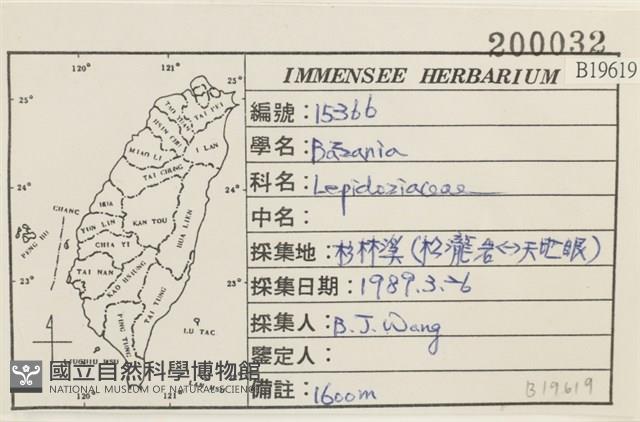 200032
IMMENSEE HERBARIUM
B19619
編號：15366
學名：Bazzania
科名：Lepidoziaceae
中名：
採集地：杉林溪（松瀧岩<->天地眼）
採集日期：1989.3.26
採集人：B.J.Wang
鑒定人：
備註：1600m
B19619
120°
121°
25°
25°
TAI PEI
TAU YUAN
HSIN CHU
I LAN
MIAO LI
TAI CHUNG
24°
24°
CHANG
HUA
PENG HU
YUN LIN
KAN TOU
HUA LIEN
CHIA YI
TAI NAN
KAO HSIUNG
23°
23°
TAI TUNG
PING TUNG
LU TAO
LIUCHIU HSU
國立自然科學博物館
NATIONAL MUSEUM OF NATURAL SCIENCE
120°
121°